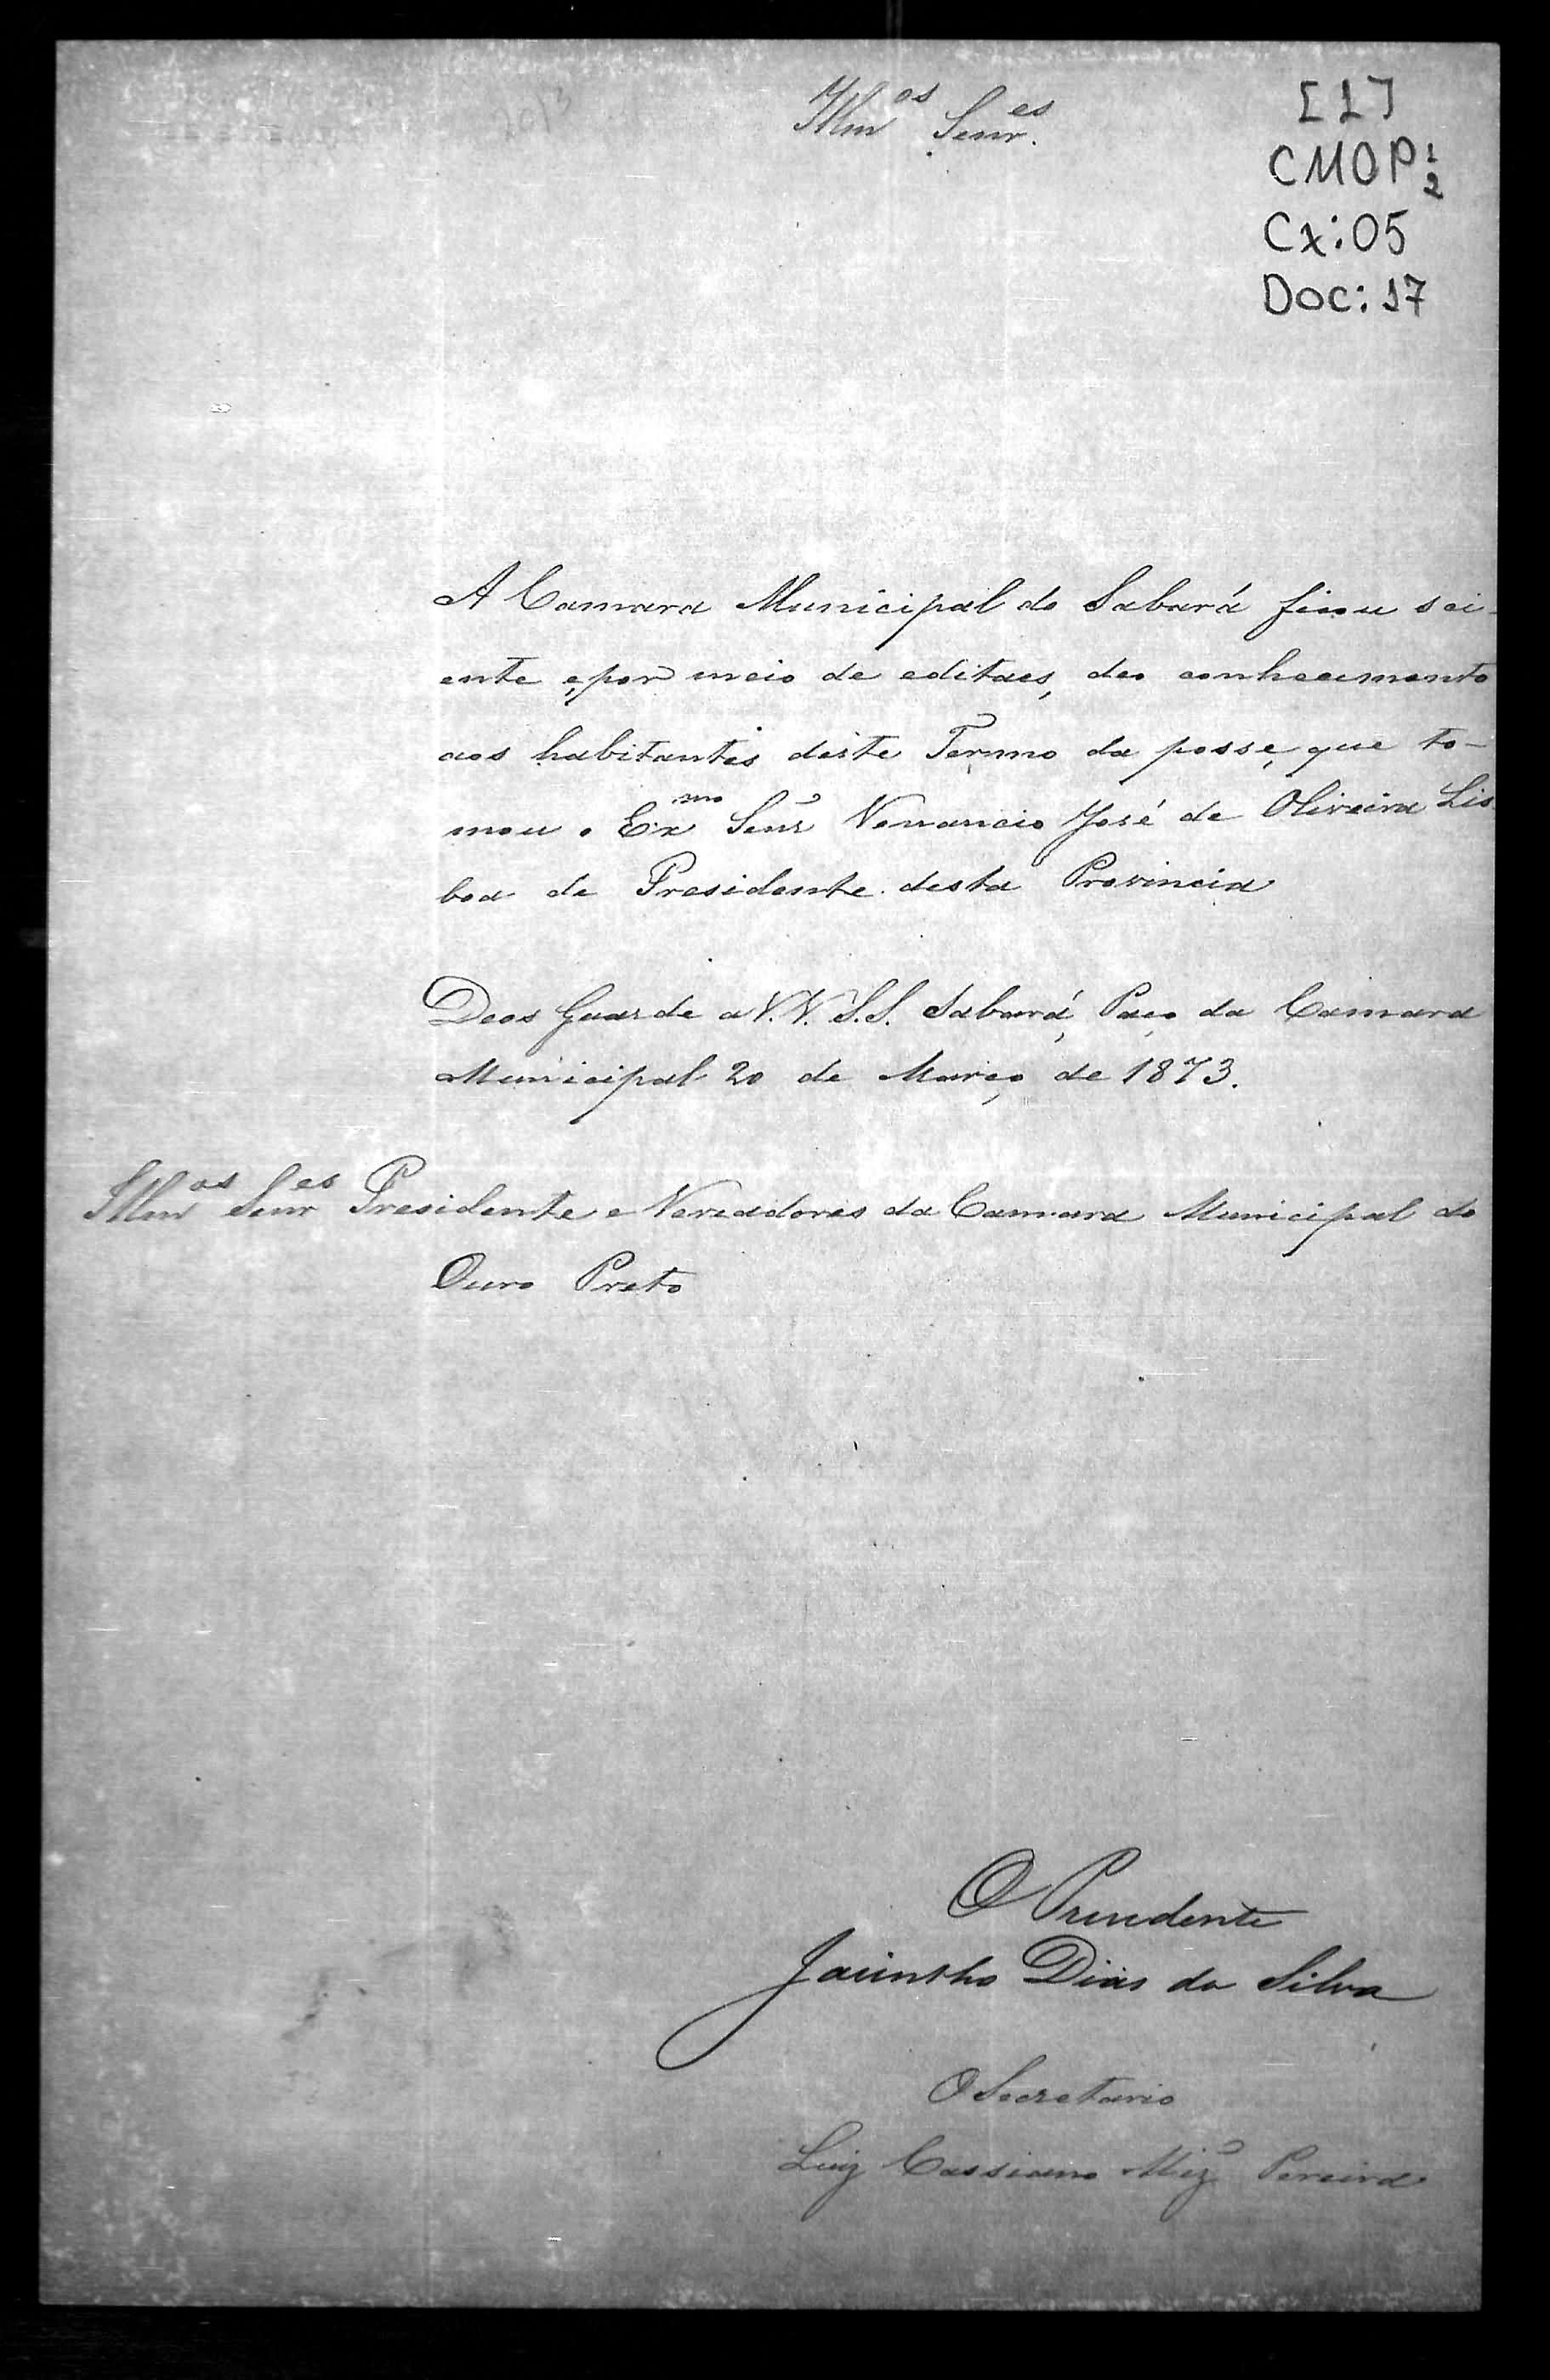 Illm.os Senr.es
[1]
CMOP 1/2
Cx: 05
Doc: 17
A Camara Municipal do Sabará ficou sci-
ente e, por meio de editaes, deo conhecimento
aos habitantes deste Termo da posse, que to-
mou o Ex.mo Senr Venancio José de Oliveira Lis
boa de Presidente desta Provincia
Deos Guarde a V.V. S.S. Sabará, Paço da Camara
Municipal 20 de Março de 1873.
Illm.os Senr.es Presidente e Vereadores da Camara Municipal do
Ouro Preto
O Presidente
Jacintho Dias da Silva
O Secretario
Luiz Cassiano Miz Pereira